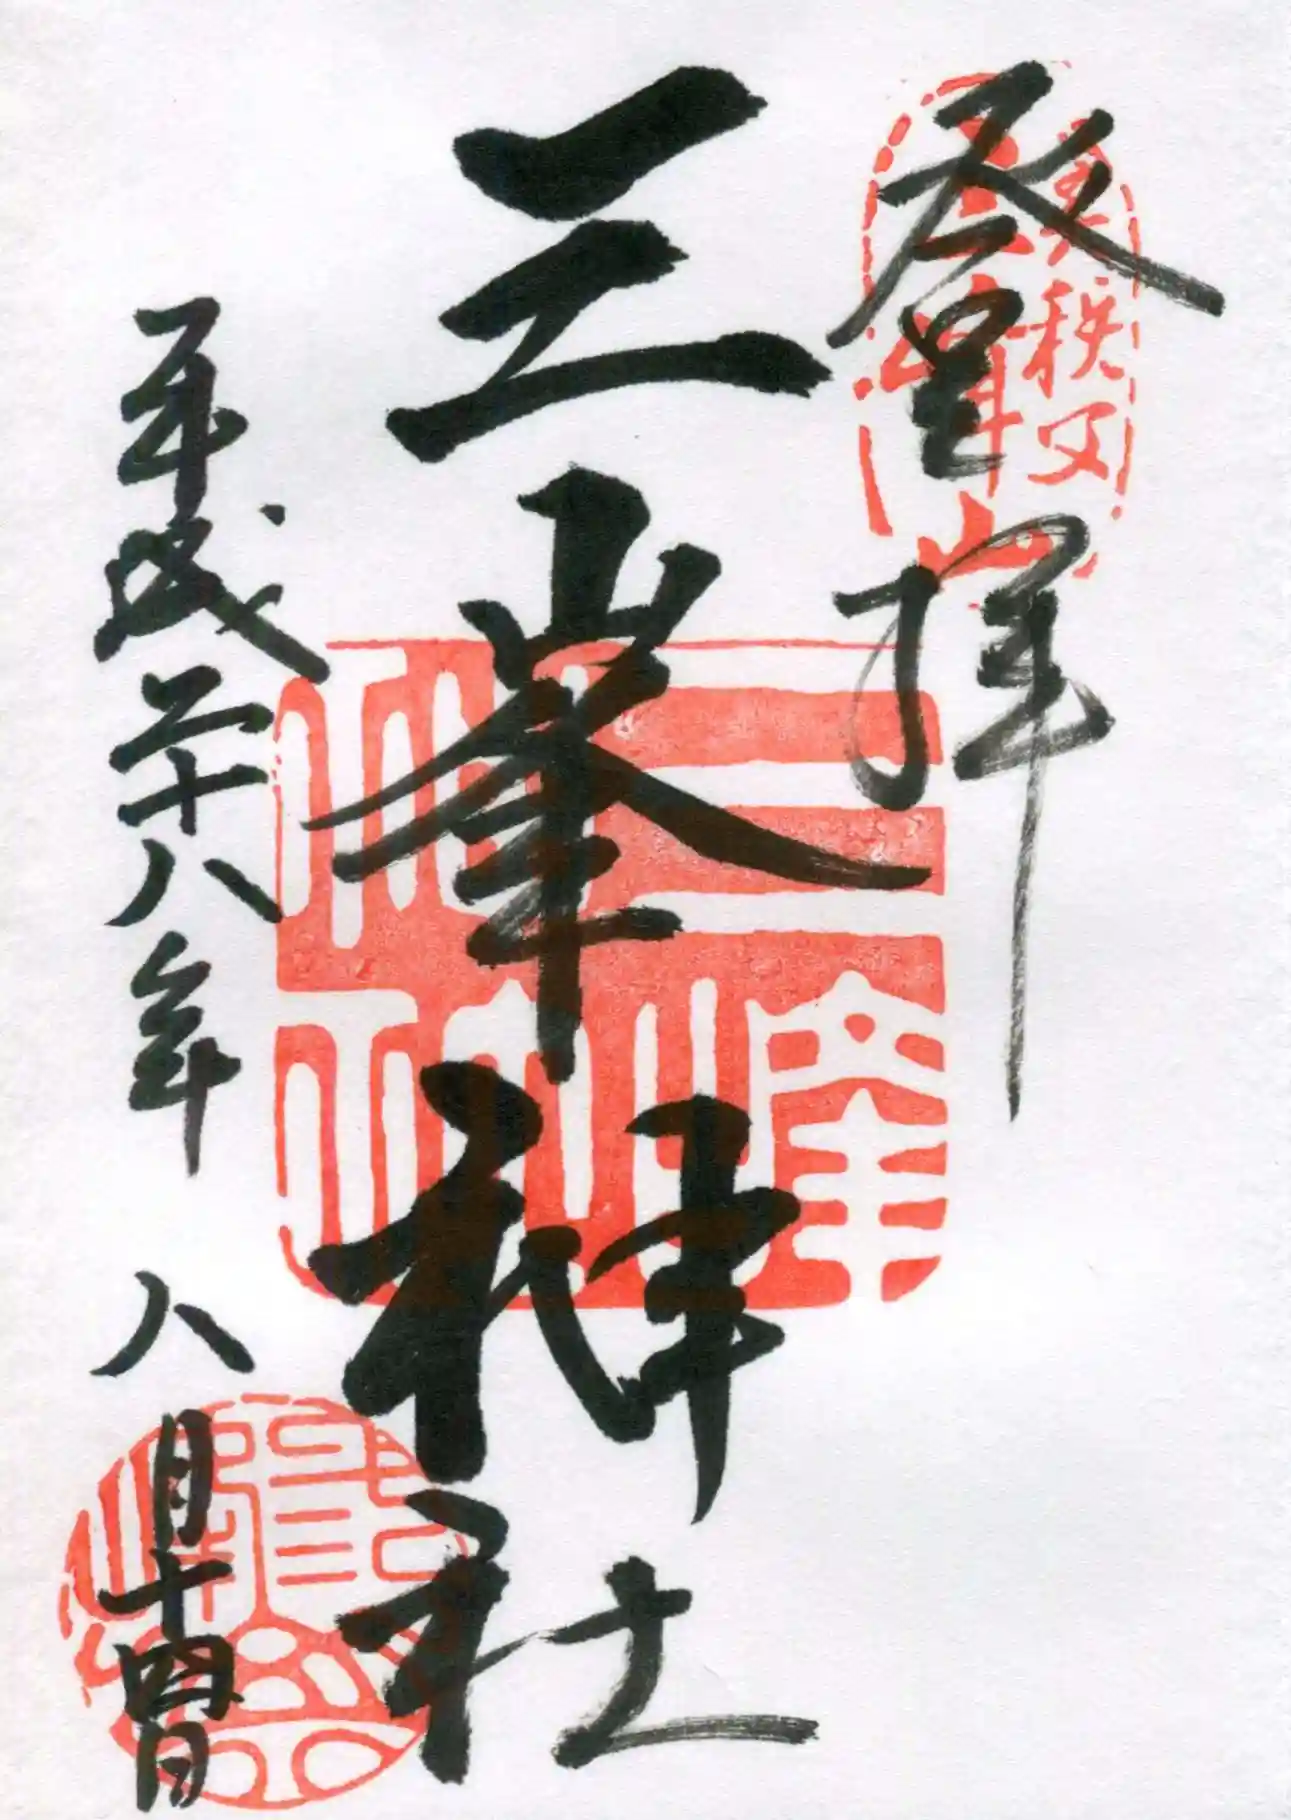 奥秩父
三峰山
登拝
三峯神社
三峯
神社
平成二十八年 八月十四日